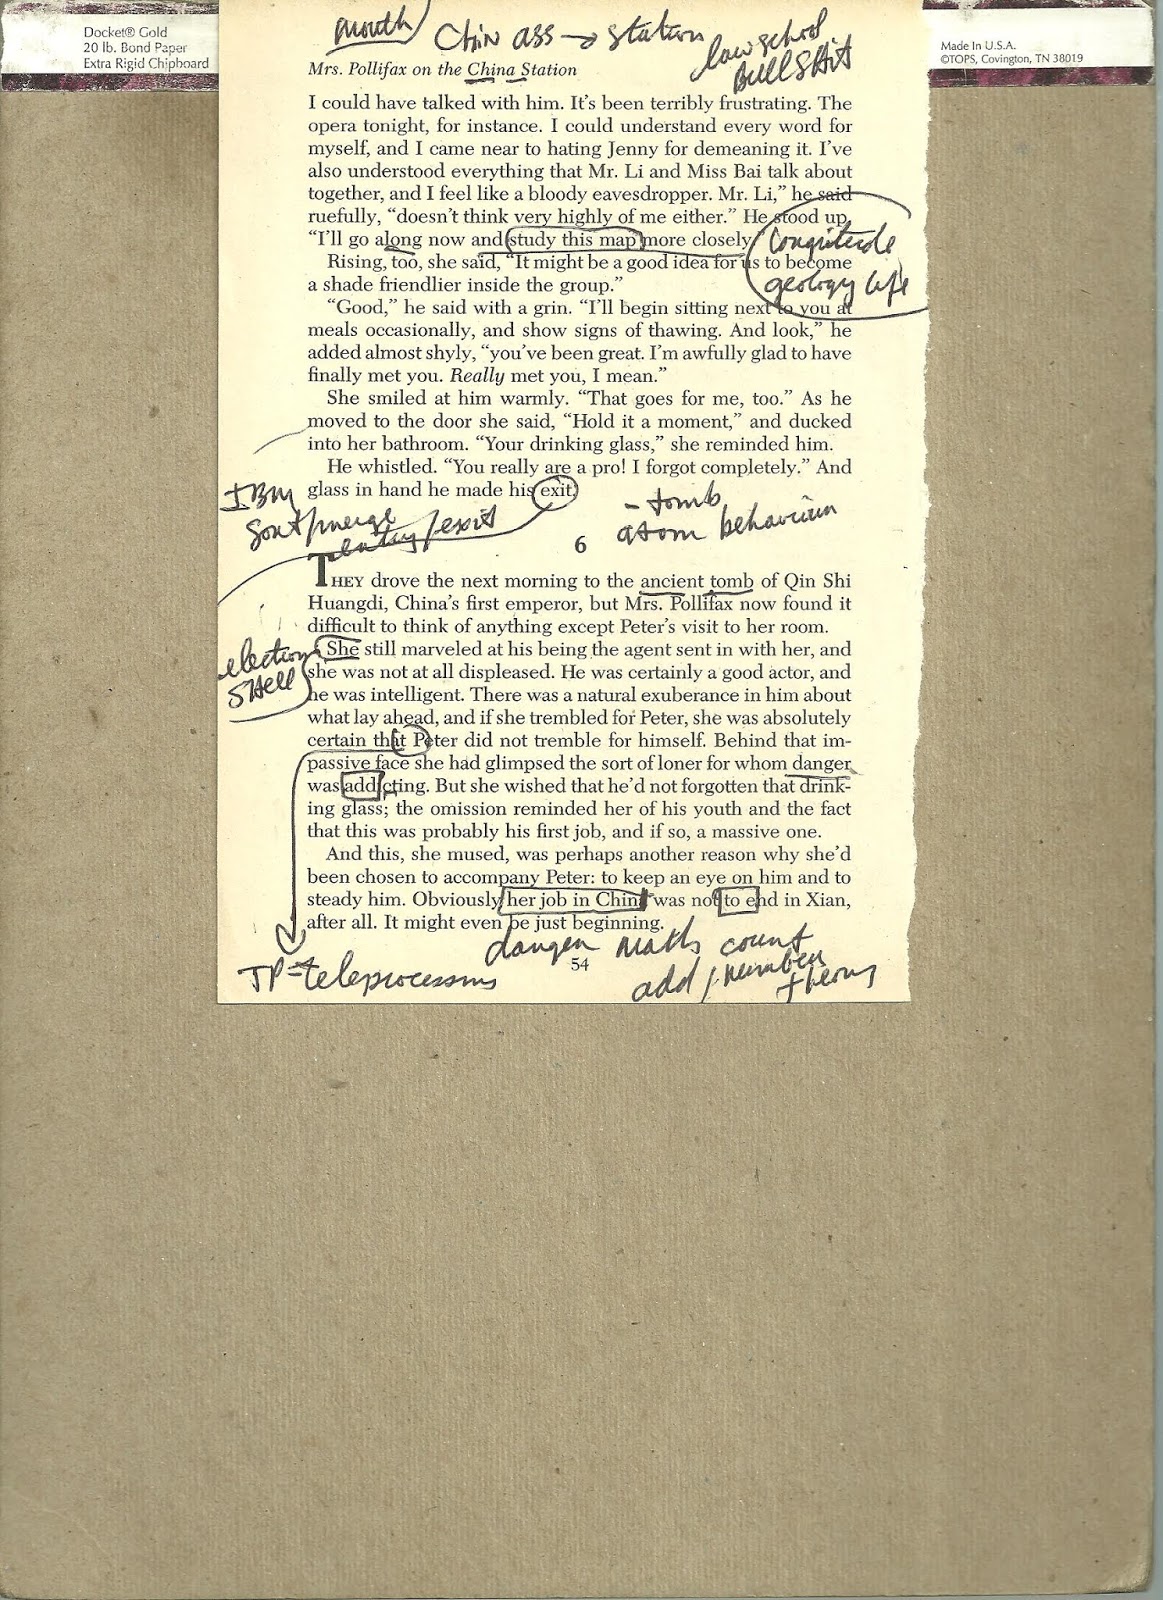 Docket® Gold
20 lb. Bond Paper
Extra Rigid Chipboard
Made In U.S.A.
©TOPS, Covington, TN 38019
mouth
Chin ass → station
law school
Bull Shit
Mrs. Pollifax on the China Station
I could have talked with him. It's been terribly frustrating. The
opera tonight, for instance. I could understand every word for
myself, and I came near to hating Jenny for demeaning it. I've
also understood everything that Mr. Li and Miss Bai talk about
together, and I feel like a bloody eavesdropper. Mr. Li,” he said
ruefully, “doesn't think very highly of me either.” He stood up.
“I'll go along now and study this map more closely.”
longitude
Rising, too, she said, “It might be a good idea for us to become
a shade friendlier inside the group.”
geology life
“Good,” he said with a grin. “I'll begin sitting next to you at
meals occasionally, and show signs of thawing. And look,” he
added almost shyly, “you've been great. I'm awfully glad to have
finally met you. Really met you, I mean.”
She smiled at him warmly. “That goes for me, too.” As he
moved to the door she said, “Hold it a moment,” and ducked
into her bathroom. “Your drinking glass,” she reminded him.
He whistled. “You really are a pro! I forgot completely.” And
glass in hand he made his exit.
IBM
Sort/merge
entry/exit
- tomb
atom behaviour
6
THEY drove the next morning to the ancient tomb of Qin Shi
Huangdi, China's first emperor, but Mrs. Pollifax now found it
difficult to think of anything except Peter's visit to her room.
electron
Shell
She still marveled at his being the agent sent in with her, and
she was not at all displeased. He was certainly a good actor, and
he was intelligent. There was a natural exuberance in him about
what lay ahead, and if she trembled for Peter, she was absolutely
certain that Peter did not tremble for himself. Behind that im-
passive face she had glimpsed the sort of loner for whom danger
was addicting. But she wished that he'd not forgotten that drink-
ing glass; the omission reminded her of his youth and the fact
that this was probably his first job, and if so, a massive one.
And this, she mused, was perhaps another reason why she'd
been chosen to accompany Peter: to keep an eye on him and to
steady him. Obviously her job in China was not to end in Xian,
after all. It might even be just beginning.
TP = teleprocessing
danger maths count
add / number
theory
54